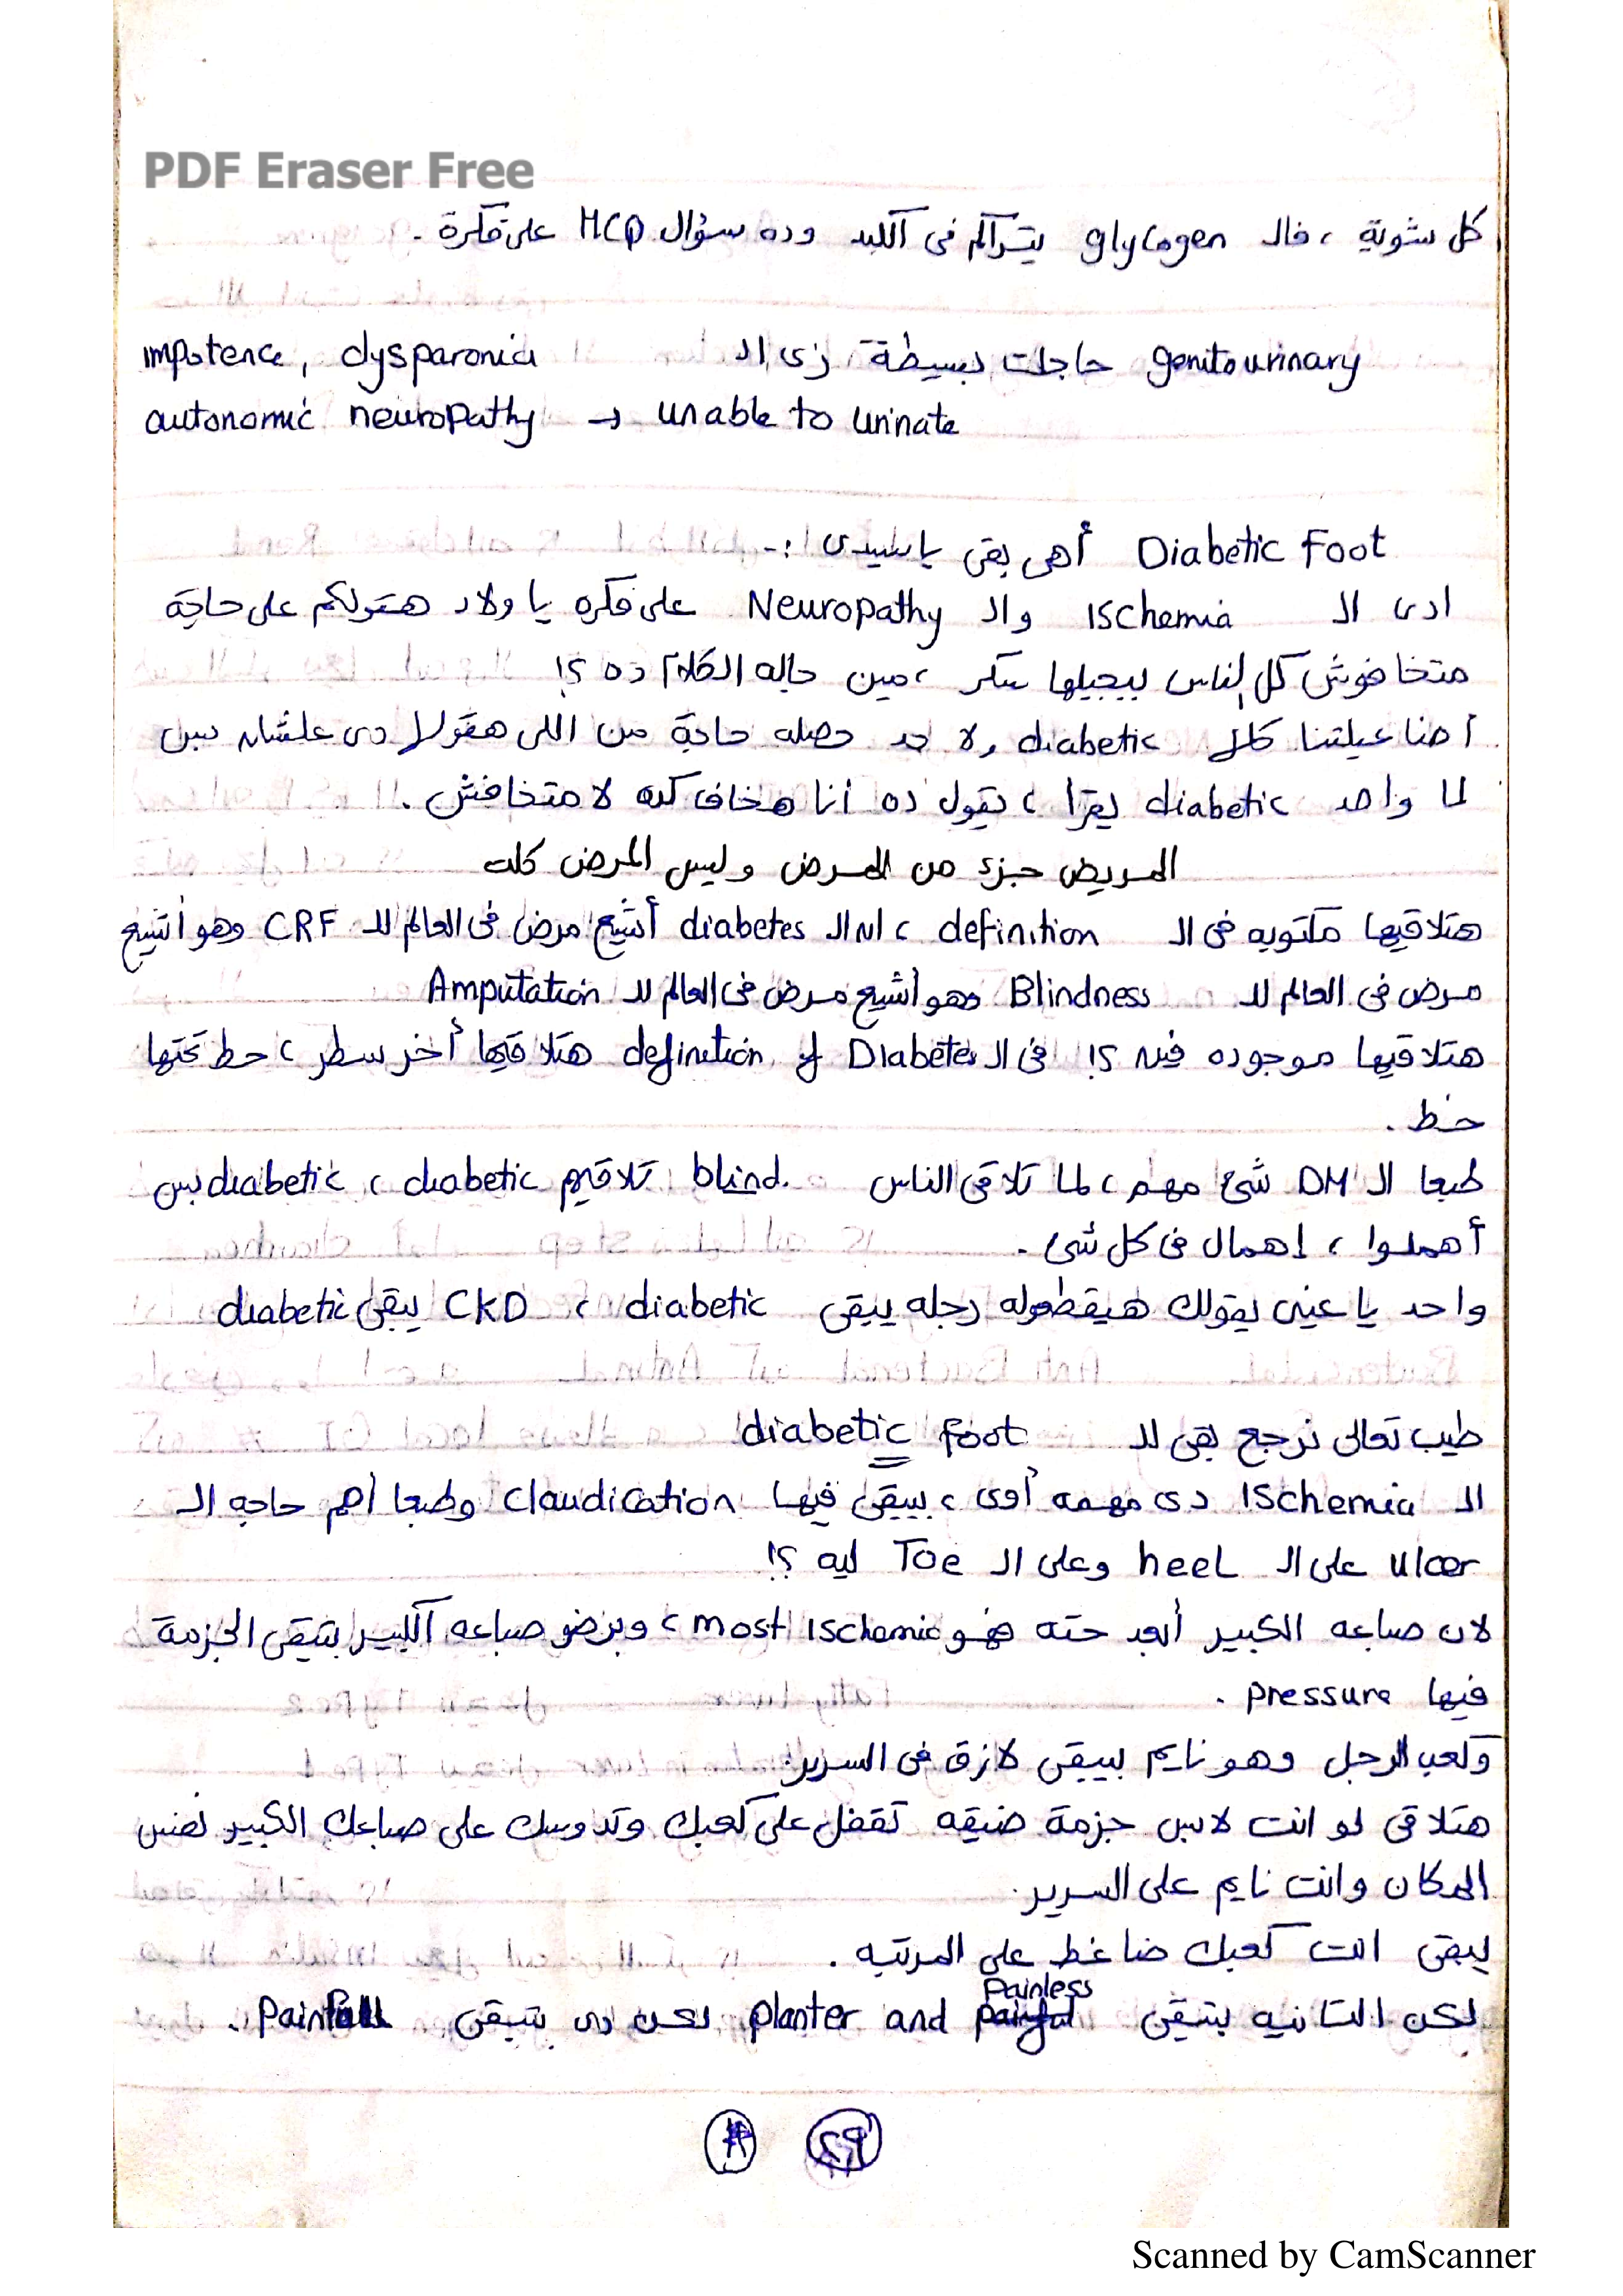 PDF Eraser Free
كل شوية ، فالـ glycogen يتراكم فى الكبد وده سؤال MCQ على فكرة .
genitourinary حاجات بسيطة زى الـ impotence , dysparonia
autonomic neuropathy → unable to urinate
Diabetic Foot أهى بقى يا سيدى :-
ادى الـ Ischemia والـ Neuropathy على فكره يا ولاد هقولكم على حاجة
متخافوش كل الناس بيجيلها سكر ، مين جاله الكلام ده ؟!
احنا عيلتنا كلها diabetic ولا حد حصله حاجة من اللى هقولها دى علشان بس
لما واحد diabetic يقرأ ، يقول ده أنا هخاف كده لا متخافش .
المريض جزء من المرض وليس المرض كله
هتلاقيها مكتوبه فى الـ definition ، ان الـ diabetes أشيع مرض فى العالم للـ CRF وهو أشيع
مرض فى العالم للـ Blindness وهو أشيع مرض فى العالم للـ Amputation
هتلاقيها موجوده فين ؟! فى الـ definition of Diabetes هتلاقيها أخر سطر ، حط تحتها
خط .
طبعا الـ DM شئ مهم ، لما تلاقى الناس blind تلاقيهم diabetic ، diabetic بس
أهملوا ، إهمال فى كل شئ .
واحد يا عينى يقولك هيقطعوله رجله يبقى diabetic ، CKD يبقى diabetic
طيب تعالى نرجع بقى للـ diabetic foot
الـ Ischemia دى مهمه أوى ، بيبقى فيها claudication وطبعا أهم حاجه الـ
ulcer على الـ heel وعلى الـ Toe ليه ؟!
لان صباعه الكبير أبعد حته فهو most Ischemic ، وبرضو صباعه الكبير بتبقى الجزمة
فيها pressure .
وكعب الرجل وهو نايم بيبقى لازق فى السرير.
هتلاقى لو انت لابس جزمة ضيقه تقفل على كعبك وتدوسك على صباعك الكبير نفس
المكان وانت نايم على السرير.
يبقى انت كعبك ضاغط على المرتبه .
لكن التانيه بتبقى Painless planter and painful لكن دى بتبقى Painfull .
٢٩
Scanned by CamScanner